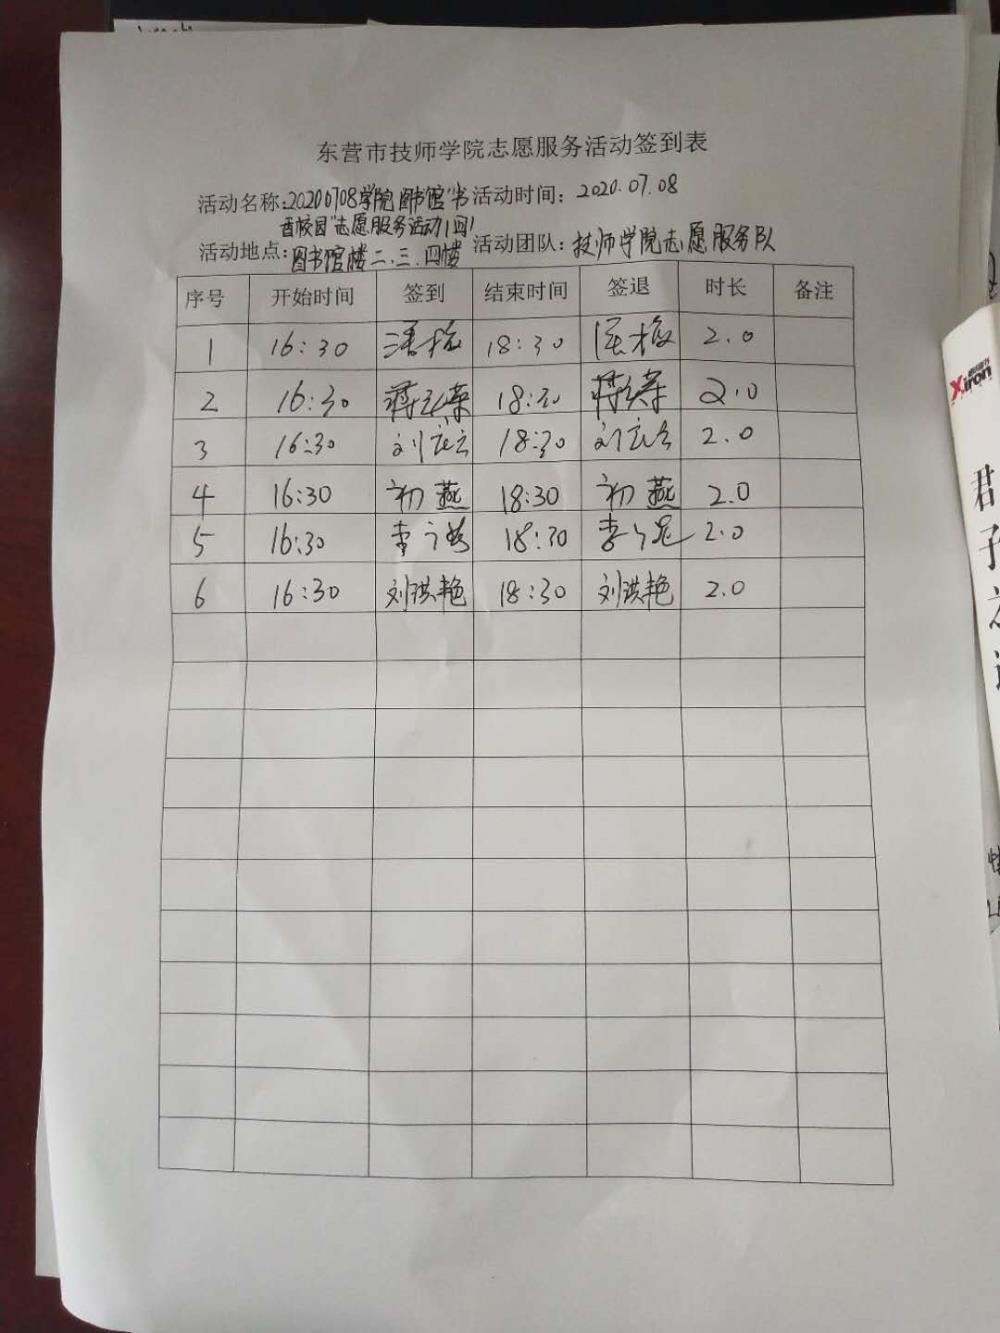 东营市技师学院志愿服务活动签到表
活动名称:20200708学院图书馆"书 活动时间: 2020.07.08
香校园"志愿服务活动(四)
活动地点:图书馆楼二、三、四楼 活动团队: 技师学院志愿服务队
序号 开始时间 签到 结束时间 签退 时长 备注
1 16:30 18:30 2.0
2 16:30 18:30 2.0
3 16:30 18:30 2.0
4 16:30 初燕 18:30 初燕 2.0
5 16:30 18:30 2.0
6 16:30 刘洪艳 18:30 刘洪艳 2.0
Xiron
君子之